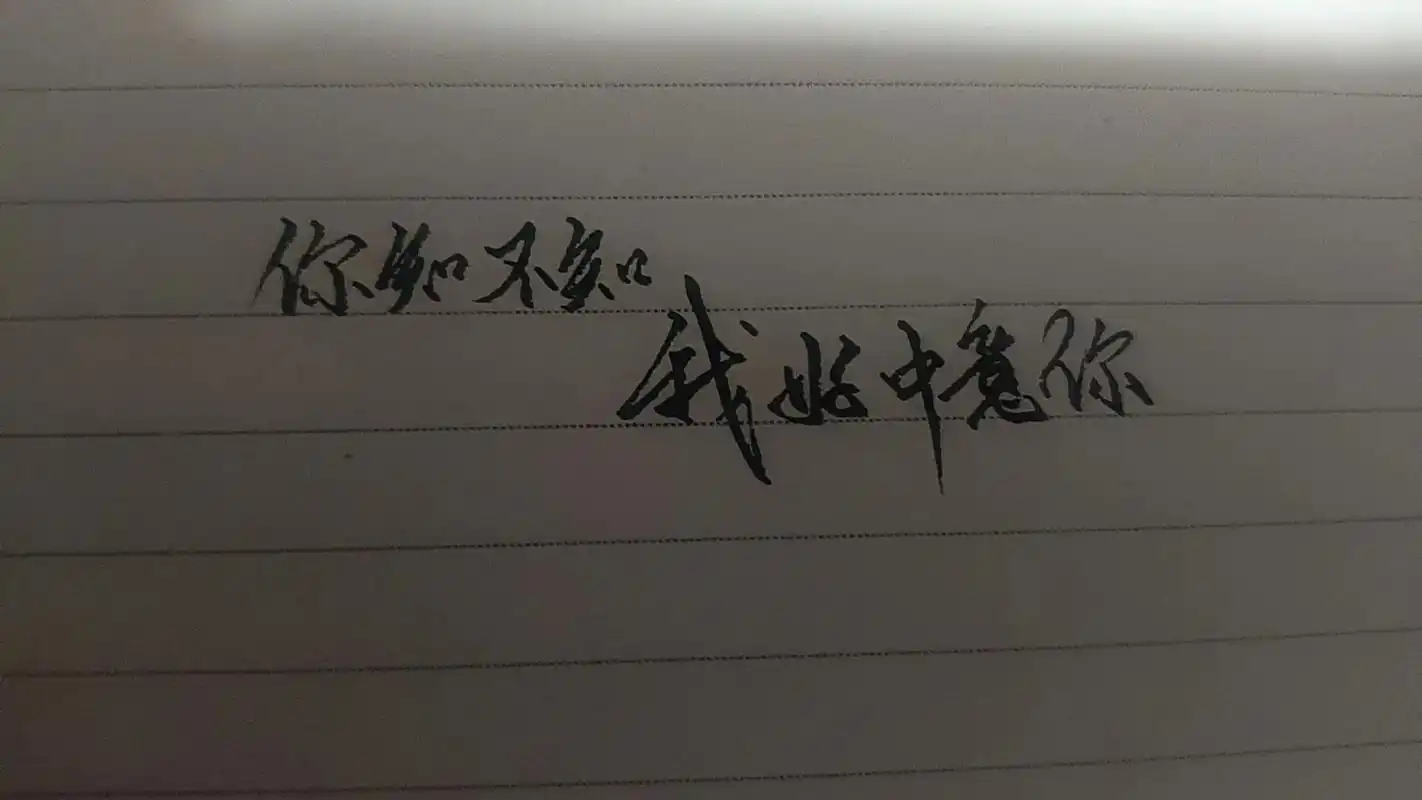 你知不知
我好中意你